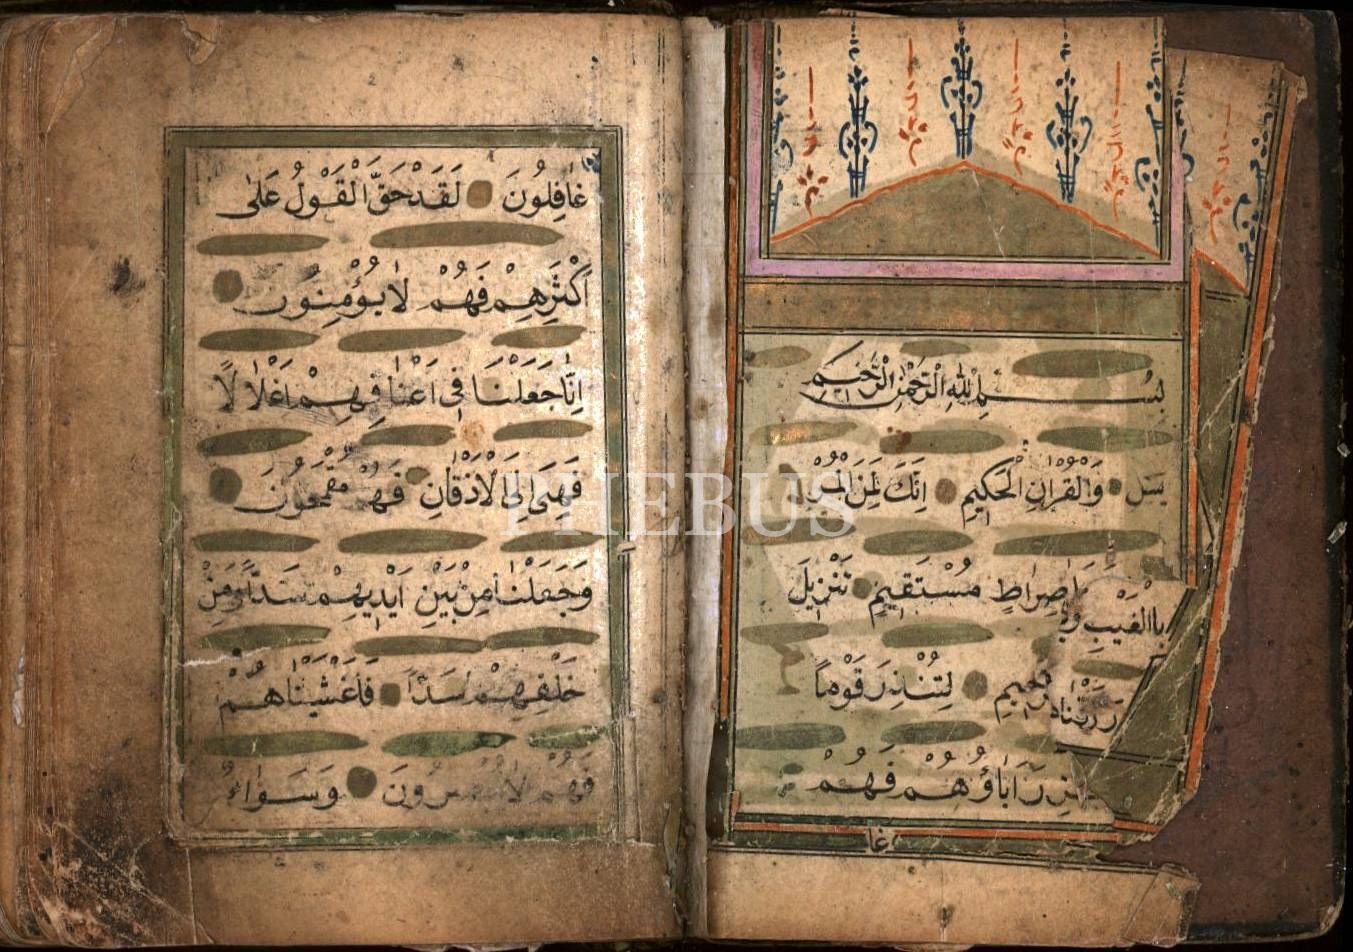 بِسْمِ اللهِ الرَّحْمٰنِ الرَّحِيمِ
يس وَالْقُرْاٰنِ الْحَكِيمِ اِنَّكَ لَمِنَ
بالغيب صِرَاطٍ مُسْتَقِيمٍ تَنْزِيلَ
لِتُنْذِرَ قَوْمًا
اٰبَاؤُهُمْ فَهُمْ
غا
غَافِلُونَ لَقَدْ حَقَّ الْقَوْلُ عَلٰى
اَكْثَرِهِمْ فَهُمْ لَا يُؤْمِنُونَ
اِنَّا جَعَلْنَا فِى اَعْنَاقِهِمْ اَغْلَالًا
فَهِىَ اِلَى الْاَذْقَانِ فَهُمْ مُقْمَحُونَ
وَجَعَلْنَا مِنْ بَيْنِ اَيْدِيهِمْ سَدًّا وَمِنْ
خَلْفِهِمْ سَدًّا فَاَغْشَيْنَاهُمْ
فَهُمْ لَا يُبْصِرُونَ وَسَوَاءٌ
PHEBUS